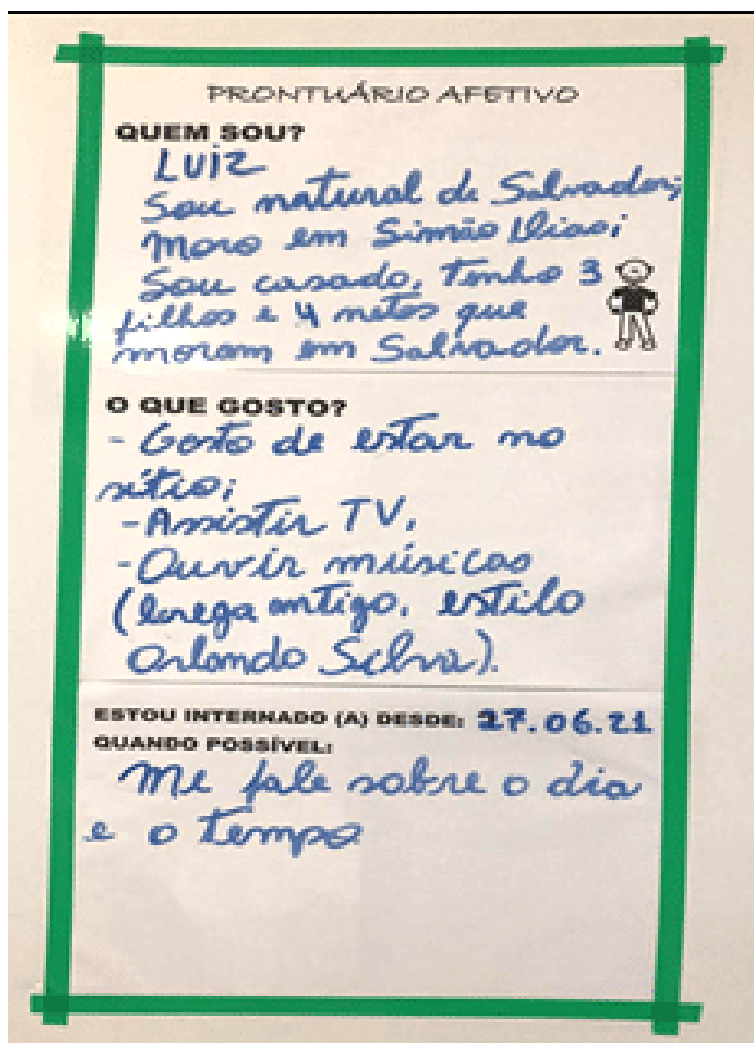 PRONTUÁRIO AFETIVO
QUEM SOU?
LUIZ
Sou natural de Salvador;
Moro em Simão Dias;
Sou casado, Tenho 3
filhos e 4 netos que
moram em Salvador.
O QUE GOSTO?
- Gosto de estar no
sítio;
- Assistir TV,
- Ouvir músicas
(brega antigo, estilo
Orlando Silva).
ESTOU INTERNADO (A) DESDE: 27.06.21
QUANDO POSSÍVEL:
Me fale sobre o dia
e o Tempo